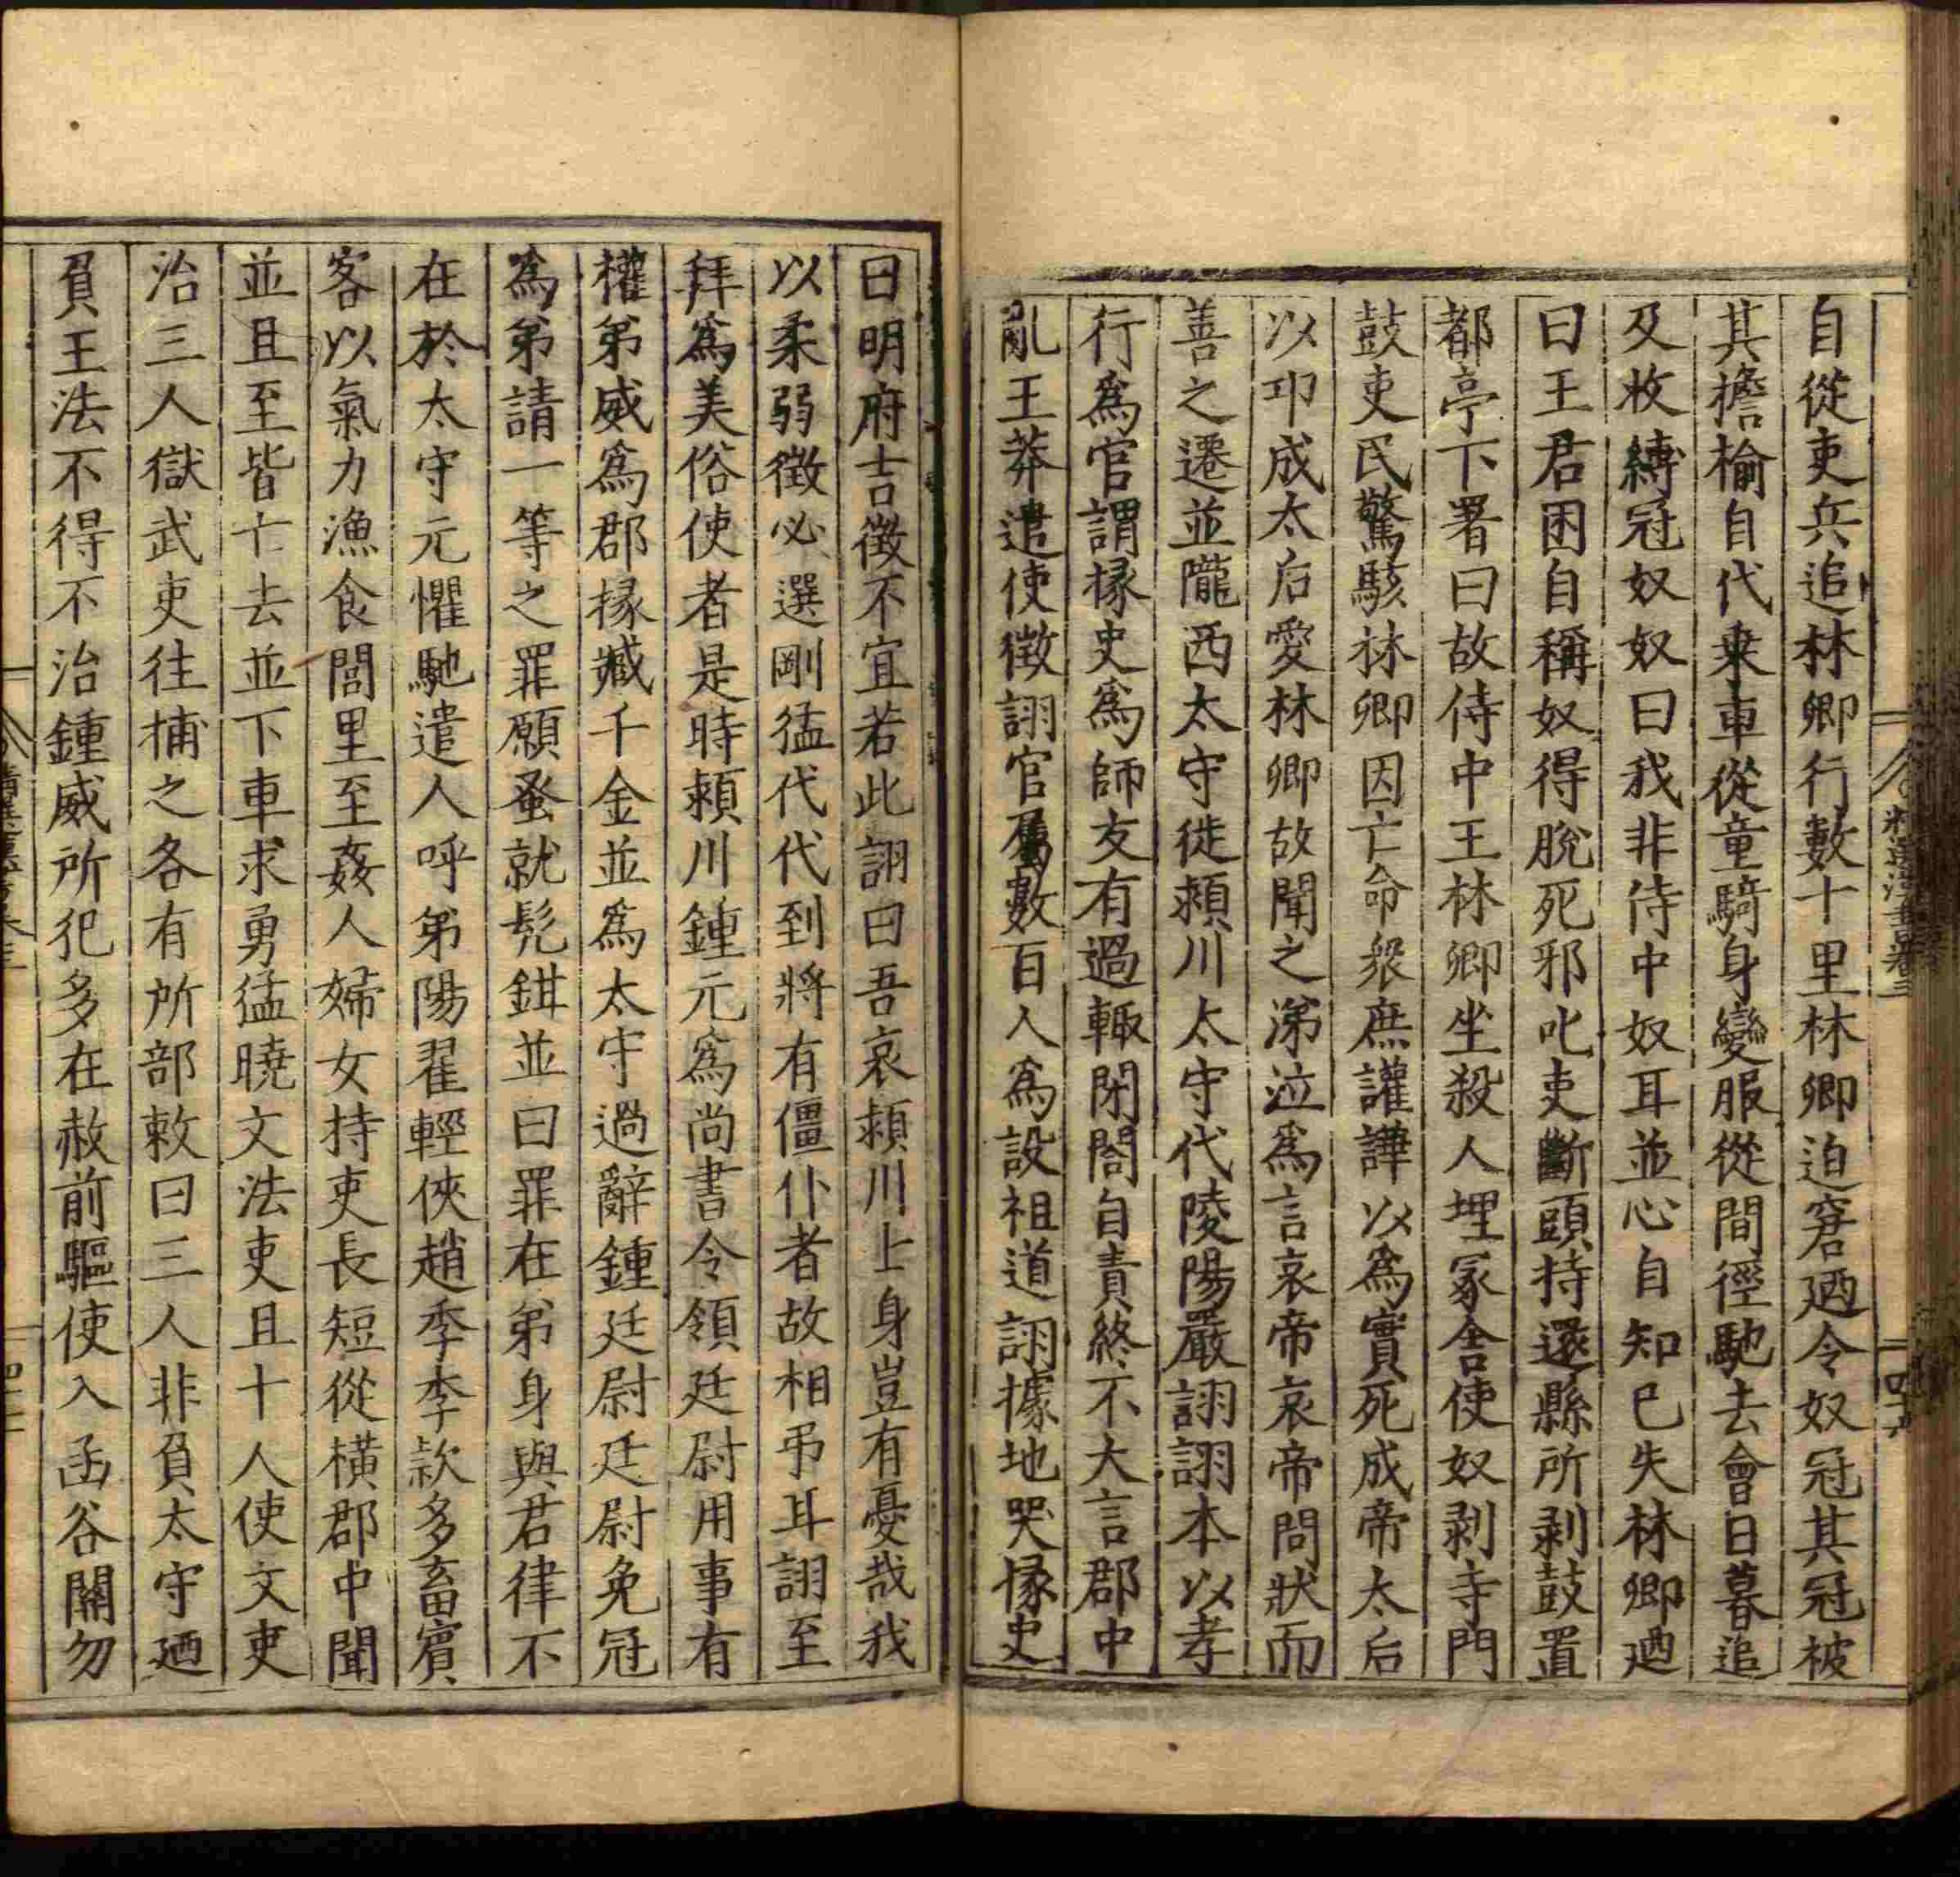 自從吏兵追林卿行數十里林卿迫窘廼令奴冠其冠被
其襜褕自代乗車從童騎身變服從間徑馳去會日暮追
及收縛冠奴奴曰我非侍中奴耳並心自知已失林卿廼
曰王君困自稱奴得脫死邪叱吏斷頭持還縣所剥鼓置
都亭下署曰故侍中王林卿坐殺人埋冢舍使奴剥寺門
鼓吏民驚駭林卿因亡命衆庶讙譁以爲實死成帝太后
以邛成太后愛林卿故聞之涕泣爲言哀帝哀帝問狀而
善之遷並隴西太守徙潁川太守代陵陽嚴詡詡本以孝
行爲官謂掾史爲師友有過輒閉閤自責終不大言郡中
亂王莽遣使徵詡官屬數百人爲設祖道詡據地哭掾史
曰明府吉徵不宜若此詡曰吾哀潁川士身豈有憂哉我
以柔弱徵必選剛猛代代到將有僵仆者故相弔耳詡至
拜爲美俗使者是時潁川鍾元爲尚書令領廷尉用事有
權弟威爲郡掾臧千金並爲太守過辭鍾廷尉廷尉免冠
爲弟請一等之罪願蚤就髡鉗並曰罪在弟身與君律不
在於太守元懼馳遣人呼弟陽翟輕俠趙季李款多畜賓
客以氣力漁食閭里至姦人婦女持吏長短從橫郡中聞
並且至皆亡去並下車求勇猛曉文法吏且十人使文吏
治三人獄武吏往捕之各有所部敕曰三人非負太守廼
負王法不得不治鍾威所犯多在赦前驅使入函谷關勿